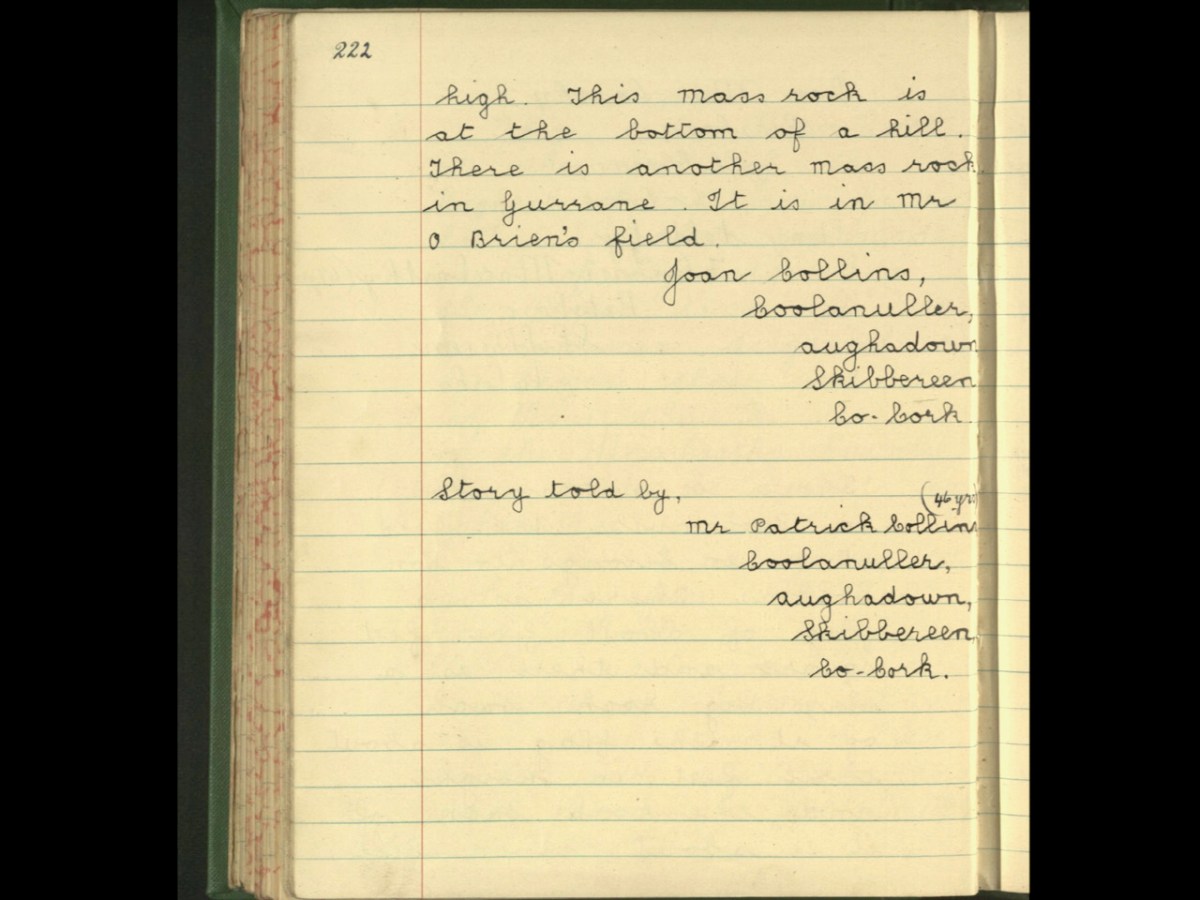 222
high. This mass rock is
at the bottom of a hill.
There is another mass rock
in Gurrane. It is in Mr
O Brien's field.
Joan Collins,
Coolanuller,
Aughadown
Skibbereen
Co-Cork.
Story told by,
(46 yrs)
Mr Patrick Collins
Coolanuller,
Aughadown,
Skibbereen,
Co-Cork.